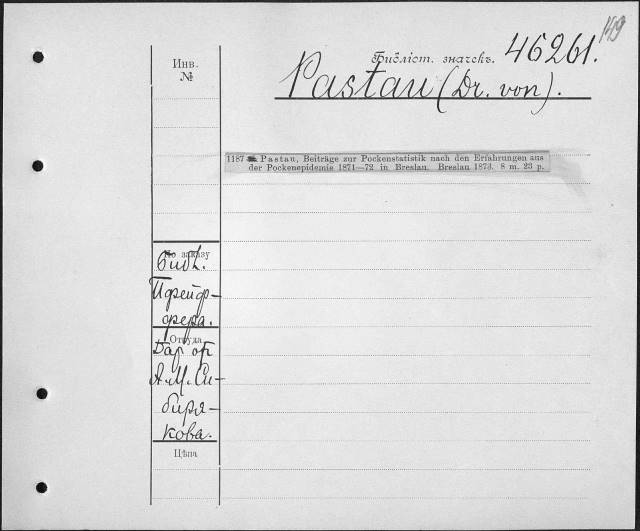 149
Инв.
№
Библіот. значекъ. 46261.
Pastau (Dr. von).
1187 Pastau, Beiträge zur Pockenstatistik nach den Erfahrungen aus
der Pockenepidemie 1871—72 in Breslau. Breslau 1873. 8 m. 23 p.
По заказу
Библ.
Пфейф-
фера.
Откуда
Дар от
А. М. Си-
биря-
кова.
Цѣна